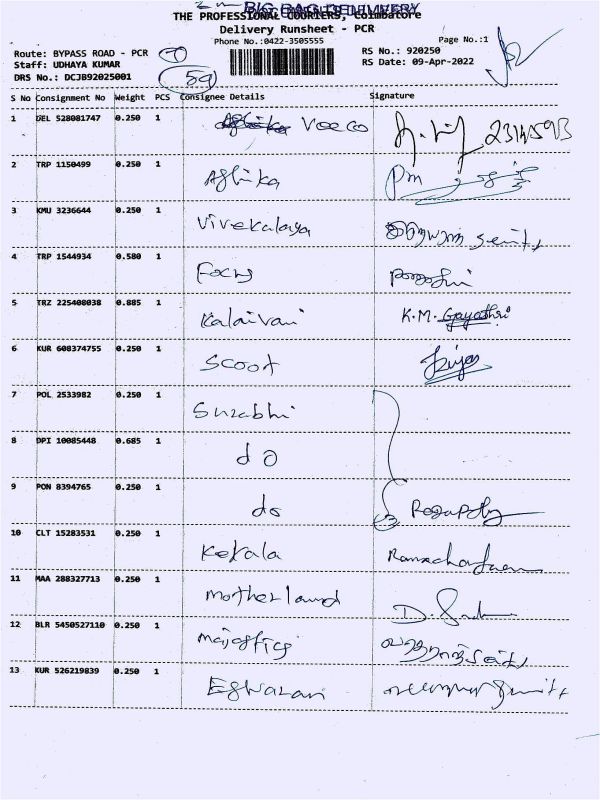 BIG BAG DELIVERY
THE PROFESSIONAL COURIERS, Coimbatore
Delivery Runsheet - PCR
Phone No.:0422-3505555
Page No.:1
Route: BYPASS ROAD - PCR
RS No.: 920250
Staff: UDHAYA KUMAR
RS Date: 09-Apr-2022
DRS No.: DCJB92025001
59
S No Consignment No Weight PCS Consignee Details Signature
1 DEL 528081747 0.250 1 Veeco
2 TRP 1150499 0.250 1 Aghika Pm
3 KMU 3236644 0.250 1 Vivekalaya
4 TRP 1544934 0.580 1 Focus
5 TRZ 225408038 0.885 1 Kalaivani K.M. Gayathri
6 KUR 608374755 0.250 1 Scoot
7 POL 2533982 0.250 1 Surabhi
8 DPI 10085448 0.685 1 do
9 PON 8394765 0.250 1 do
10 CLT 15283531 0.250 1 Kerala
11 MAA 288327713 0.250 1 Motherland
12 BLR 5450527110 0.250 1
13 KUR 526219839 0.250 1 Eswaran